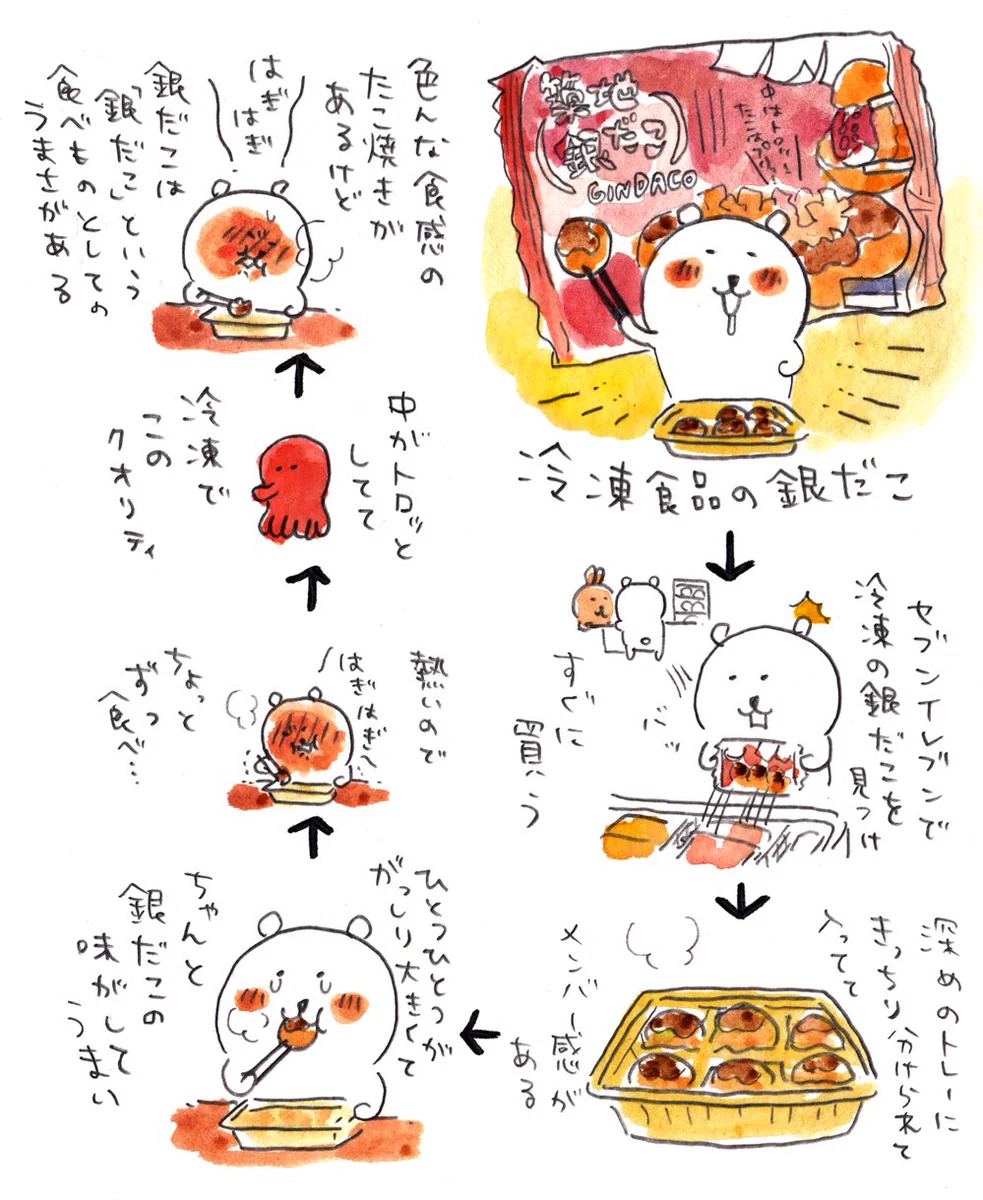 築地
銀だこ
GINDACO
中はトロッ
たこはプリッ
冷凍食品の銀だこ
セブンイレブンで
冷凍の銀だこを
見つけ
バッ
すぐに
買う
深めのトレーに
きっちり分けられて
入ってて
メンバー感が
ある
ひとつひとつが
がっしり大きくて
ちゃんと
銀だこの
味がして
うまい
熱いので
はぎはぎ
ちょっと
ずつ
食べ…
中がトロッと
してて
冷凍で
この
クオリティ
色んな食感の
たこ焼きが
あるけど
はぎ
はぎ
銀だこは
「銀だこ」という
食べものとしての
うまさがある